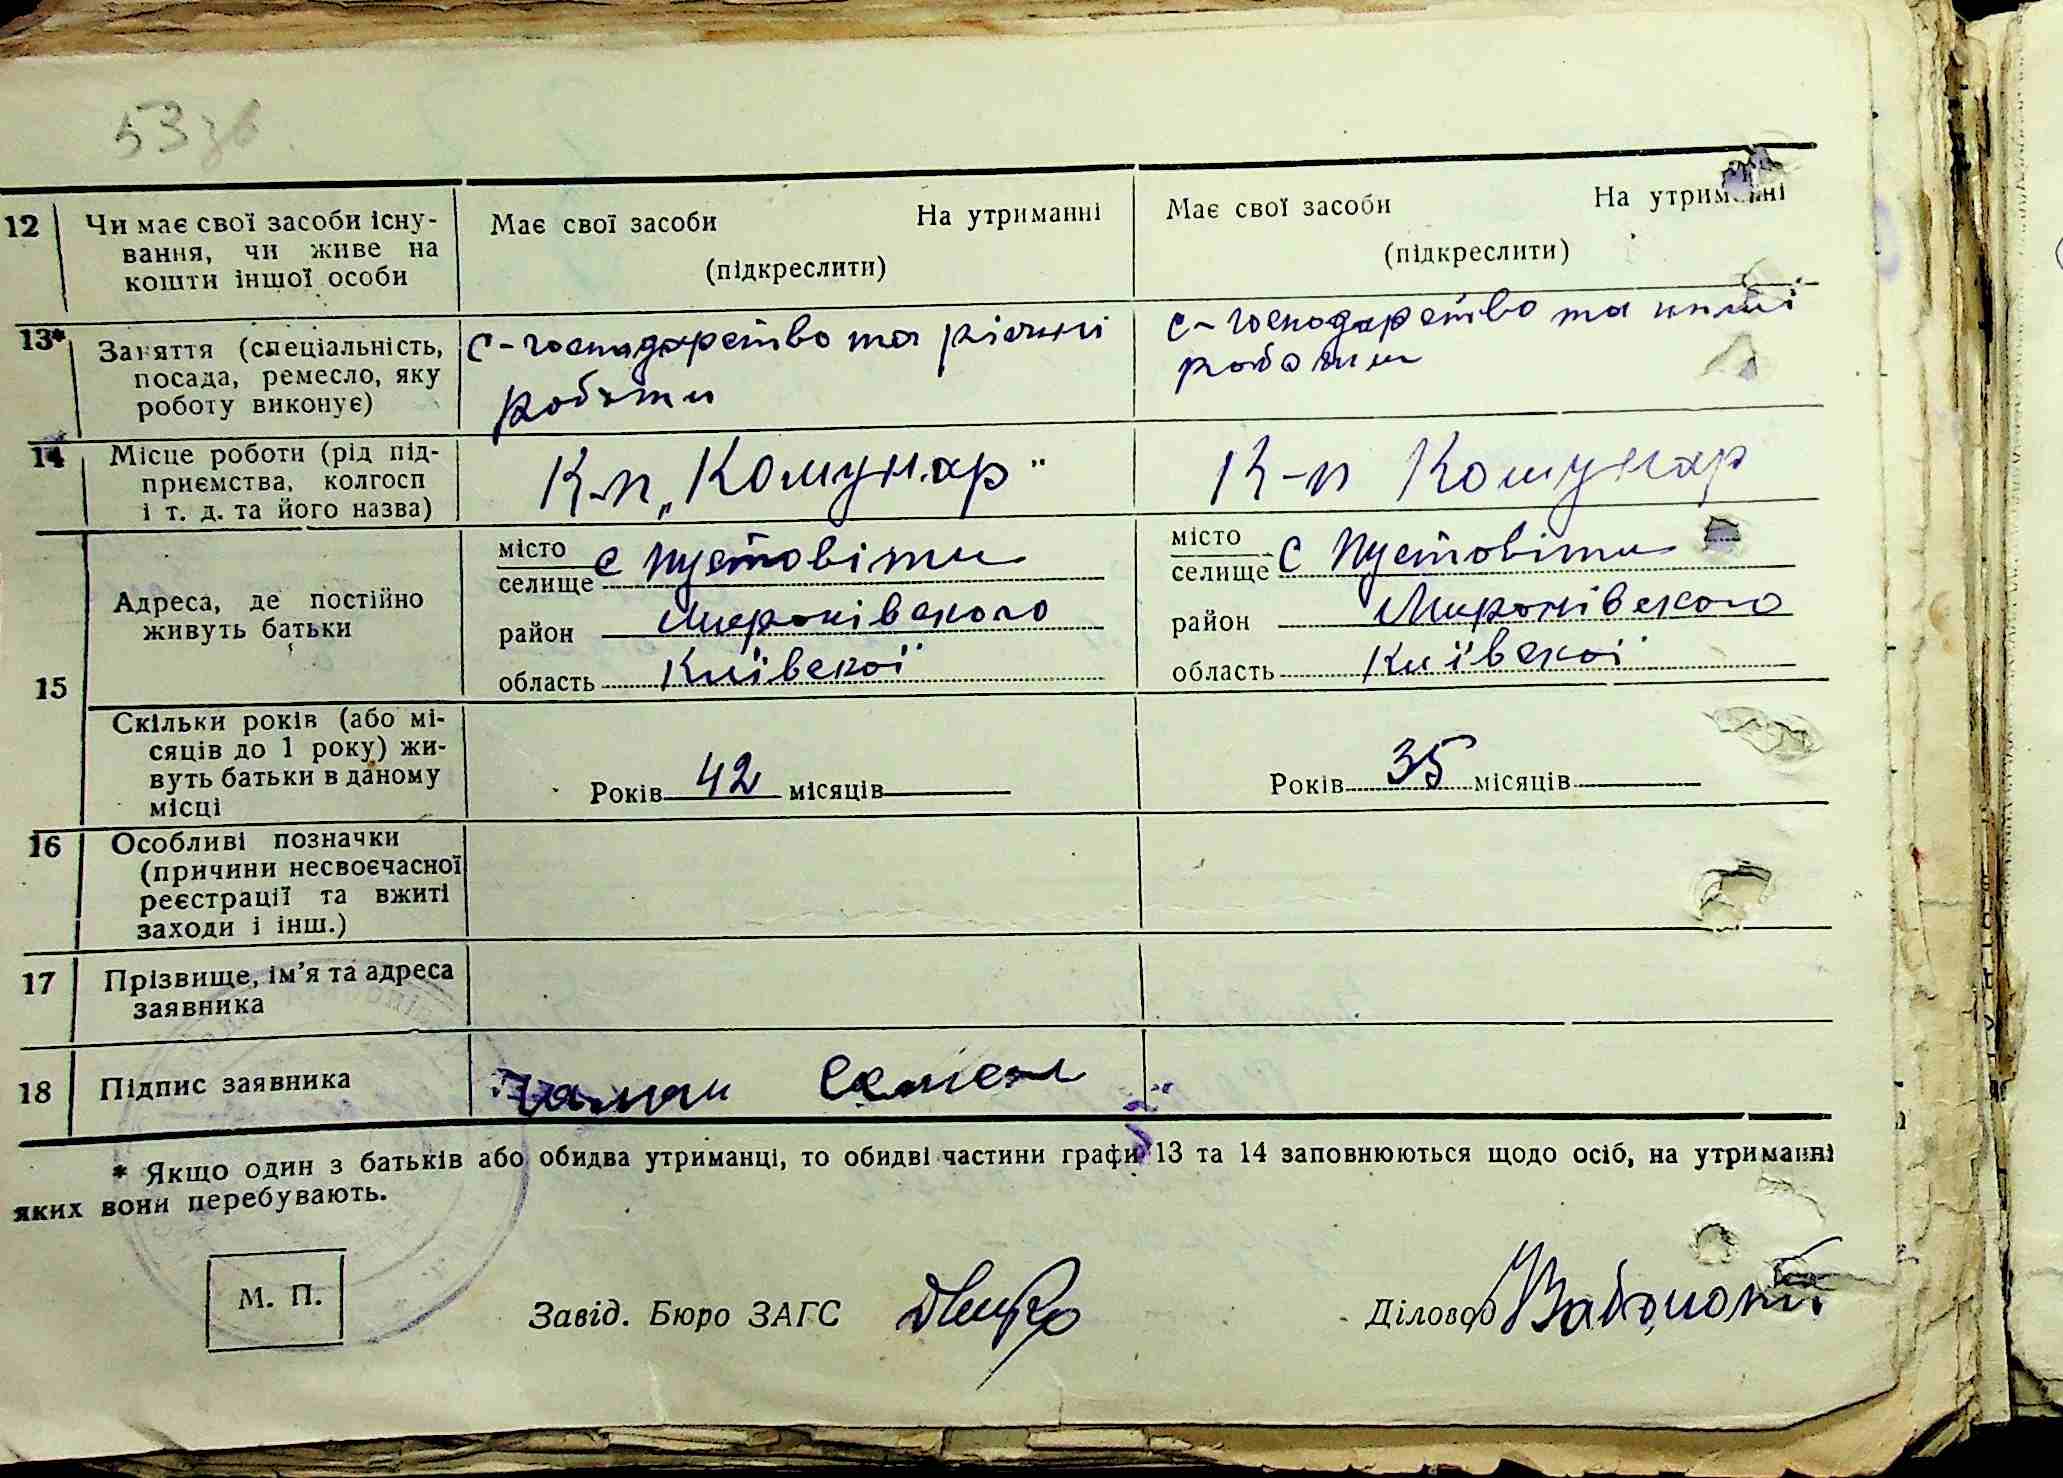 53 зв.
12 Чи має свої засоби існу-
вання, чи живе на
кошти іншої особи
Має свої засоби На утриманні
(підкреслити)
Має свої засоби На утриманні
(підкреслити)
13* Заняття (спеціальність,
посада, ремесло, яку
роботу виконує)
с-господарство та різниі
роботи
с-господарство та инші
роботи
14 Місце роботи (рід під-
приємства, колгосп
і т. д. та його назва)
К-п „Комунар"
К-п Комунар
15 Адреса, де постійно
живуть батьки
місто
селище с Пустовіти
район Миронівского
область Київскої
місто
селище с Пустовіти
район Миронівского
область Київскої
Скільки років (або мі-
сяців до 1 року) жи-
вуть батьки в даному
місці
Років 42 місяців
Років 35 місяців
16 Особливі позначки
(причини несвоєчасної
реєстрації та вжиті
заходи і інш.)
17 Прізвище, ім'я та адреса
заявника
18 Підпис заявника
* Якщо один з батьків або обидва утриманці, то обидві частини графи 13 та 14 заповнюються щодо осіб, на утриманні
яких вони перебувають.
М. П.
Завід. Бюро ЗАГС
Діловод